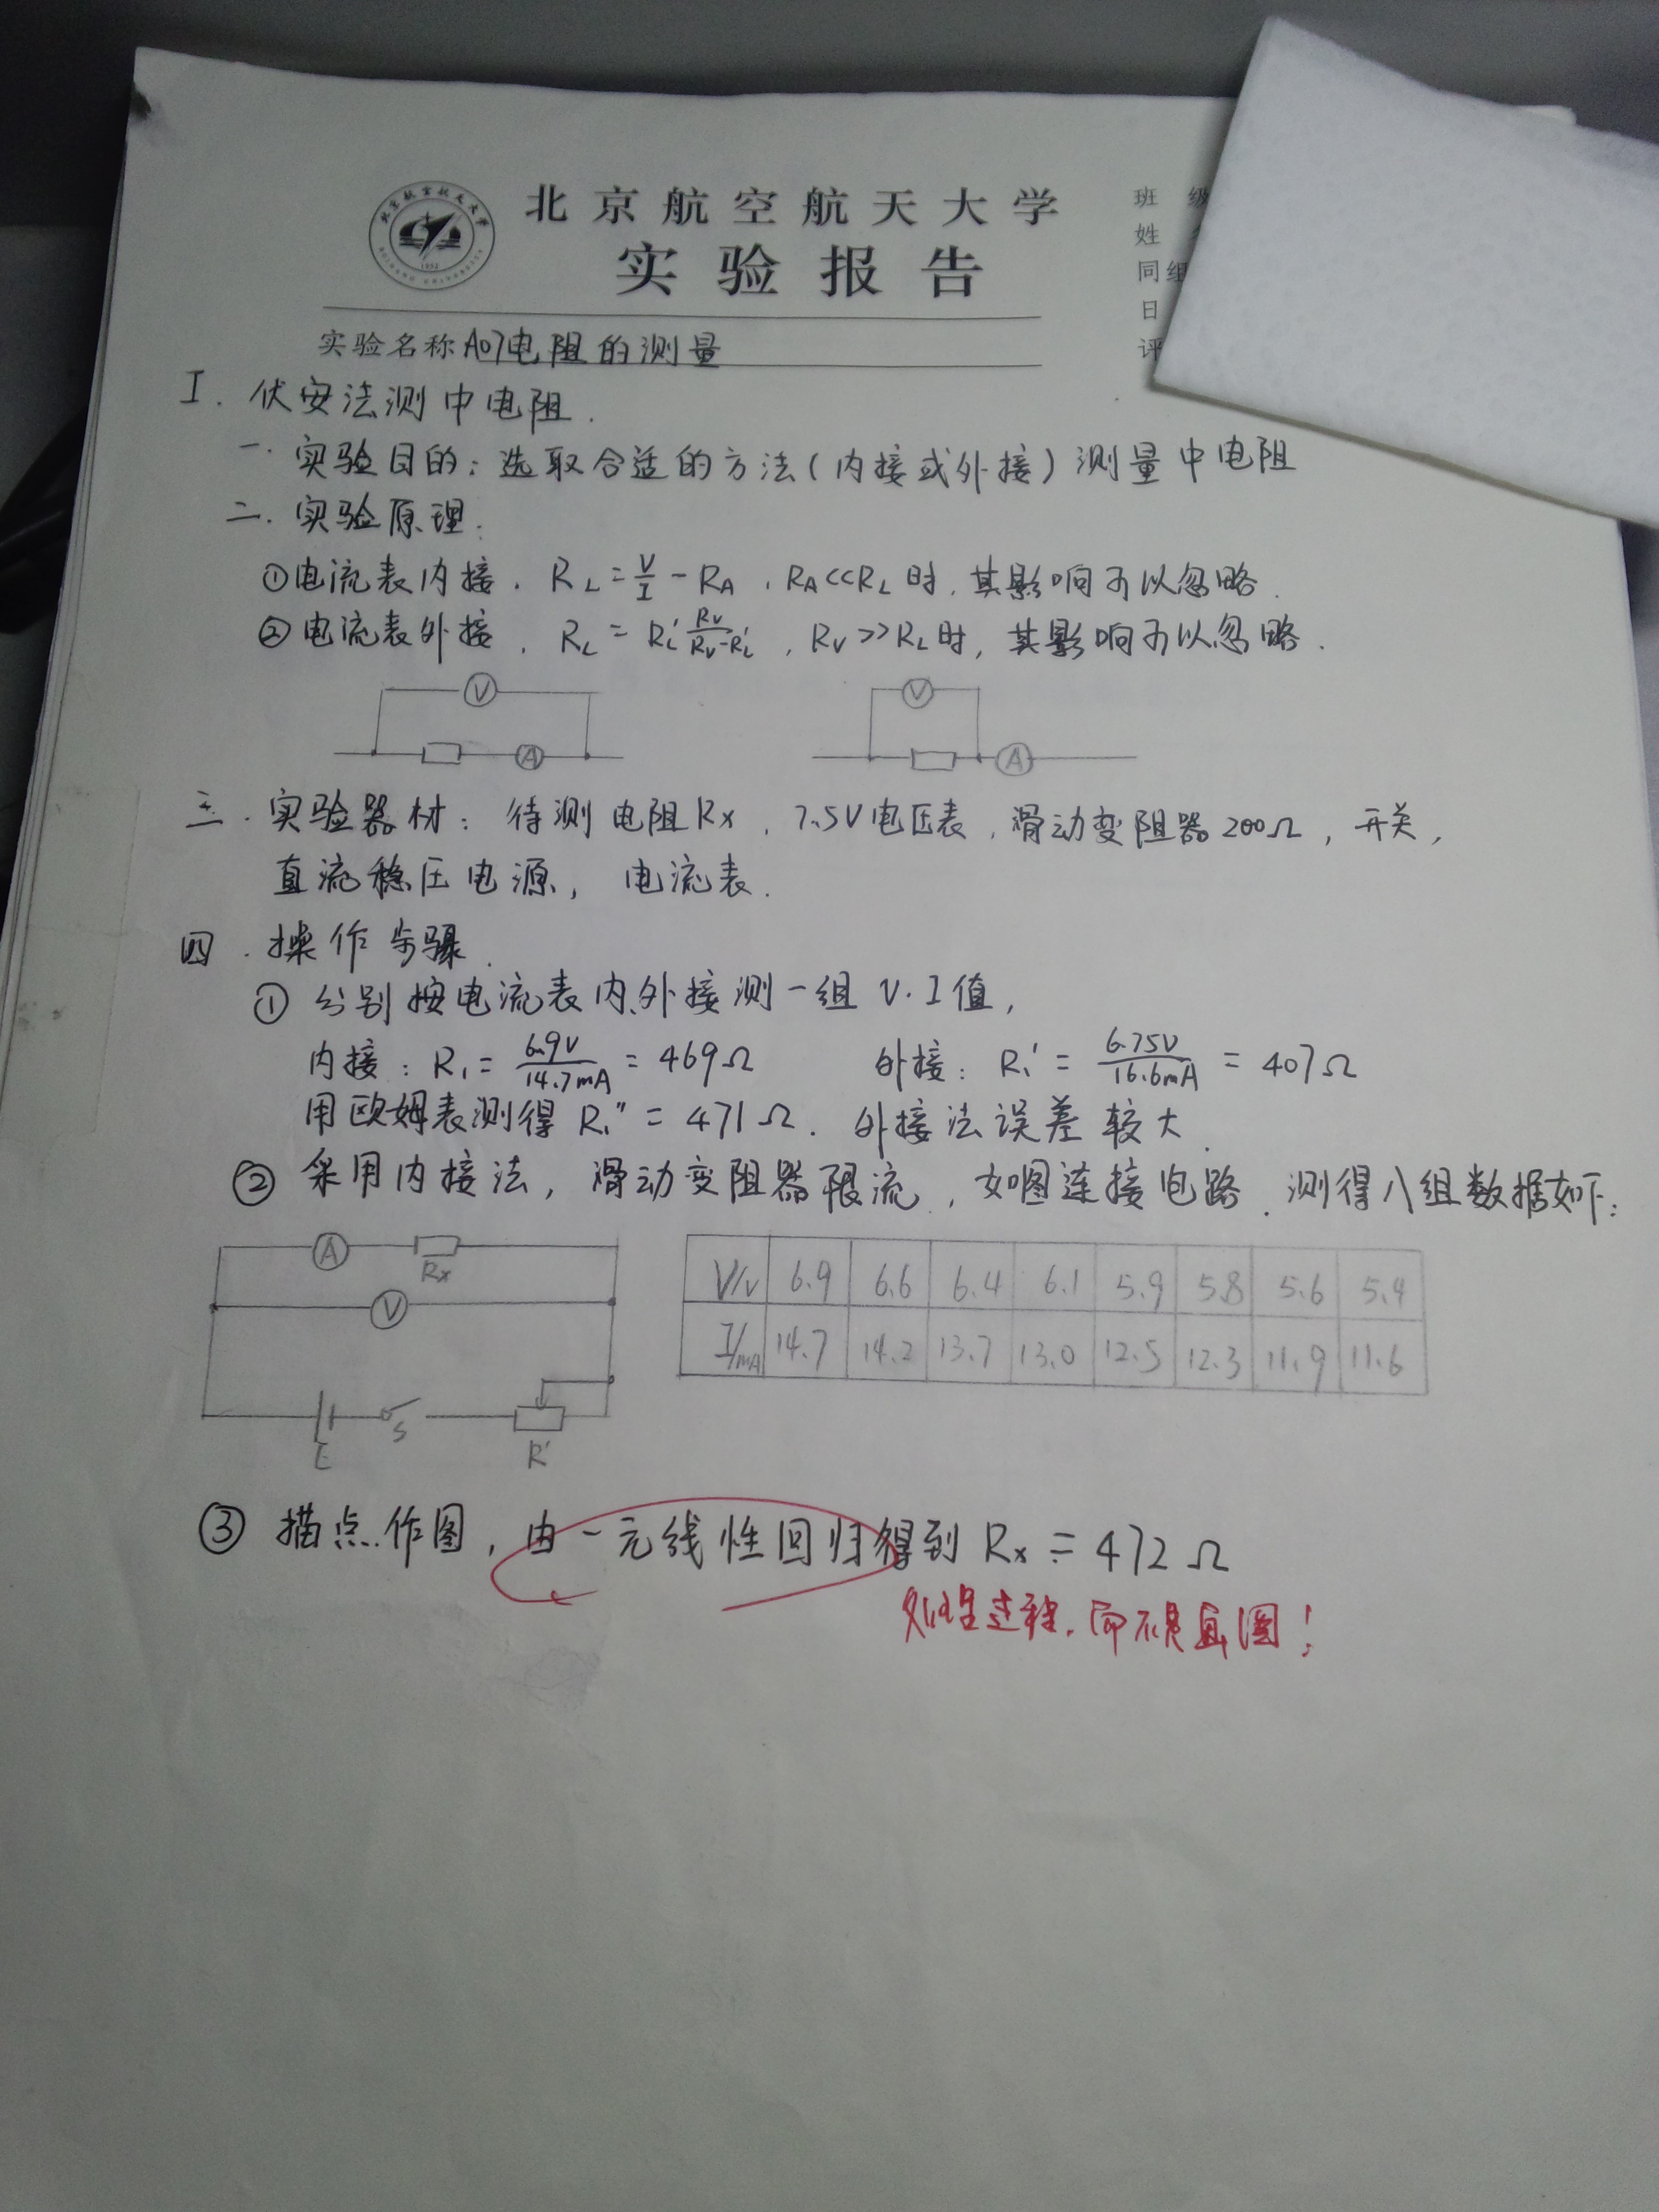 北京航空航天大学
实验报告
班 级
姓
同组
日
评
实验名称 A07电阻的测量
I. 伏安法测中电阻.
一. 实验目的: 选取合适的方法(内接或外接)测量中电阻
二. 实验原理:
①电流表内接. R_L = V/I - R_A, R_A<<R_L 时, 其影响可以忽略.
②电流表外接, R_L = R_L' R_V/(R_V-R_L'), R_V>>R_L时, 其影响可以忽略.
V V
A A
三. 实验器材: 待测电阻Rx, 7.5V电压表, 滑动变阻器200Ω, 开关,
直流稳压电源, 电流表.
四. 操作步骤.
① 分别按电流表内、外接测一组 V. I值,
内接: R₁ = 6.9V/14.7mA = 469Ω 外接: R₁' = 6.75V/16.6mA = 407Ω
用欧姆表测得 R₁'' = 471Ω. 外接法误差较大.
② 采用内接法, 滑动变阻器限流, 如图连接电路. 测得八组数据如下:
A Rx
V
E S R'
V/V 6.9 6.6 6.4 6.1 5.9 5.8 5.6 5.4
I/mA 14.7 14.2 13.7 13.0 12.5 12.3 11.9 11.6
③ 描点作图, 由一元线性回归得到 Rx = 472Ω
处理过程, 而不是画图!